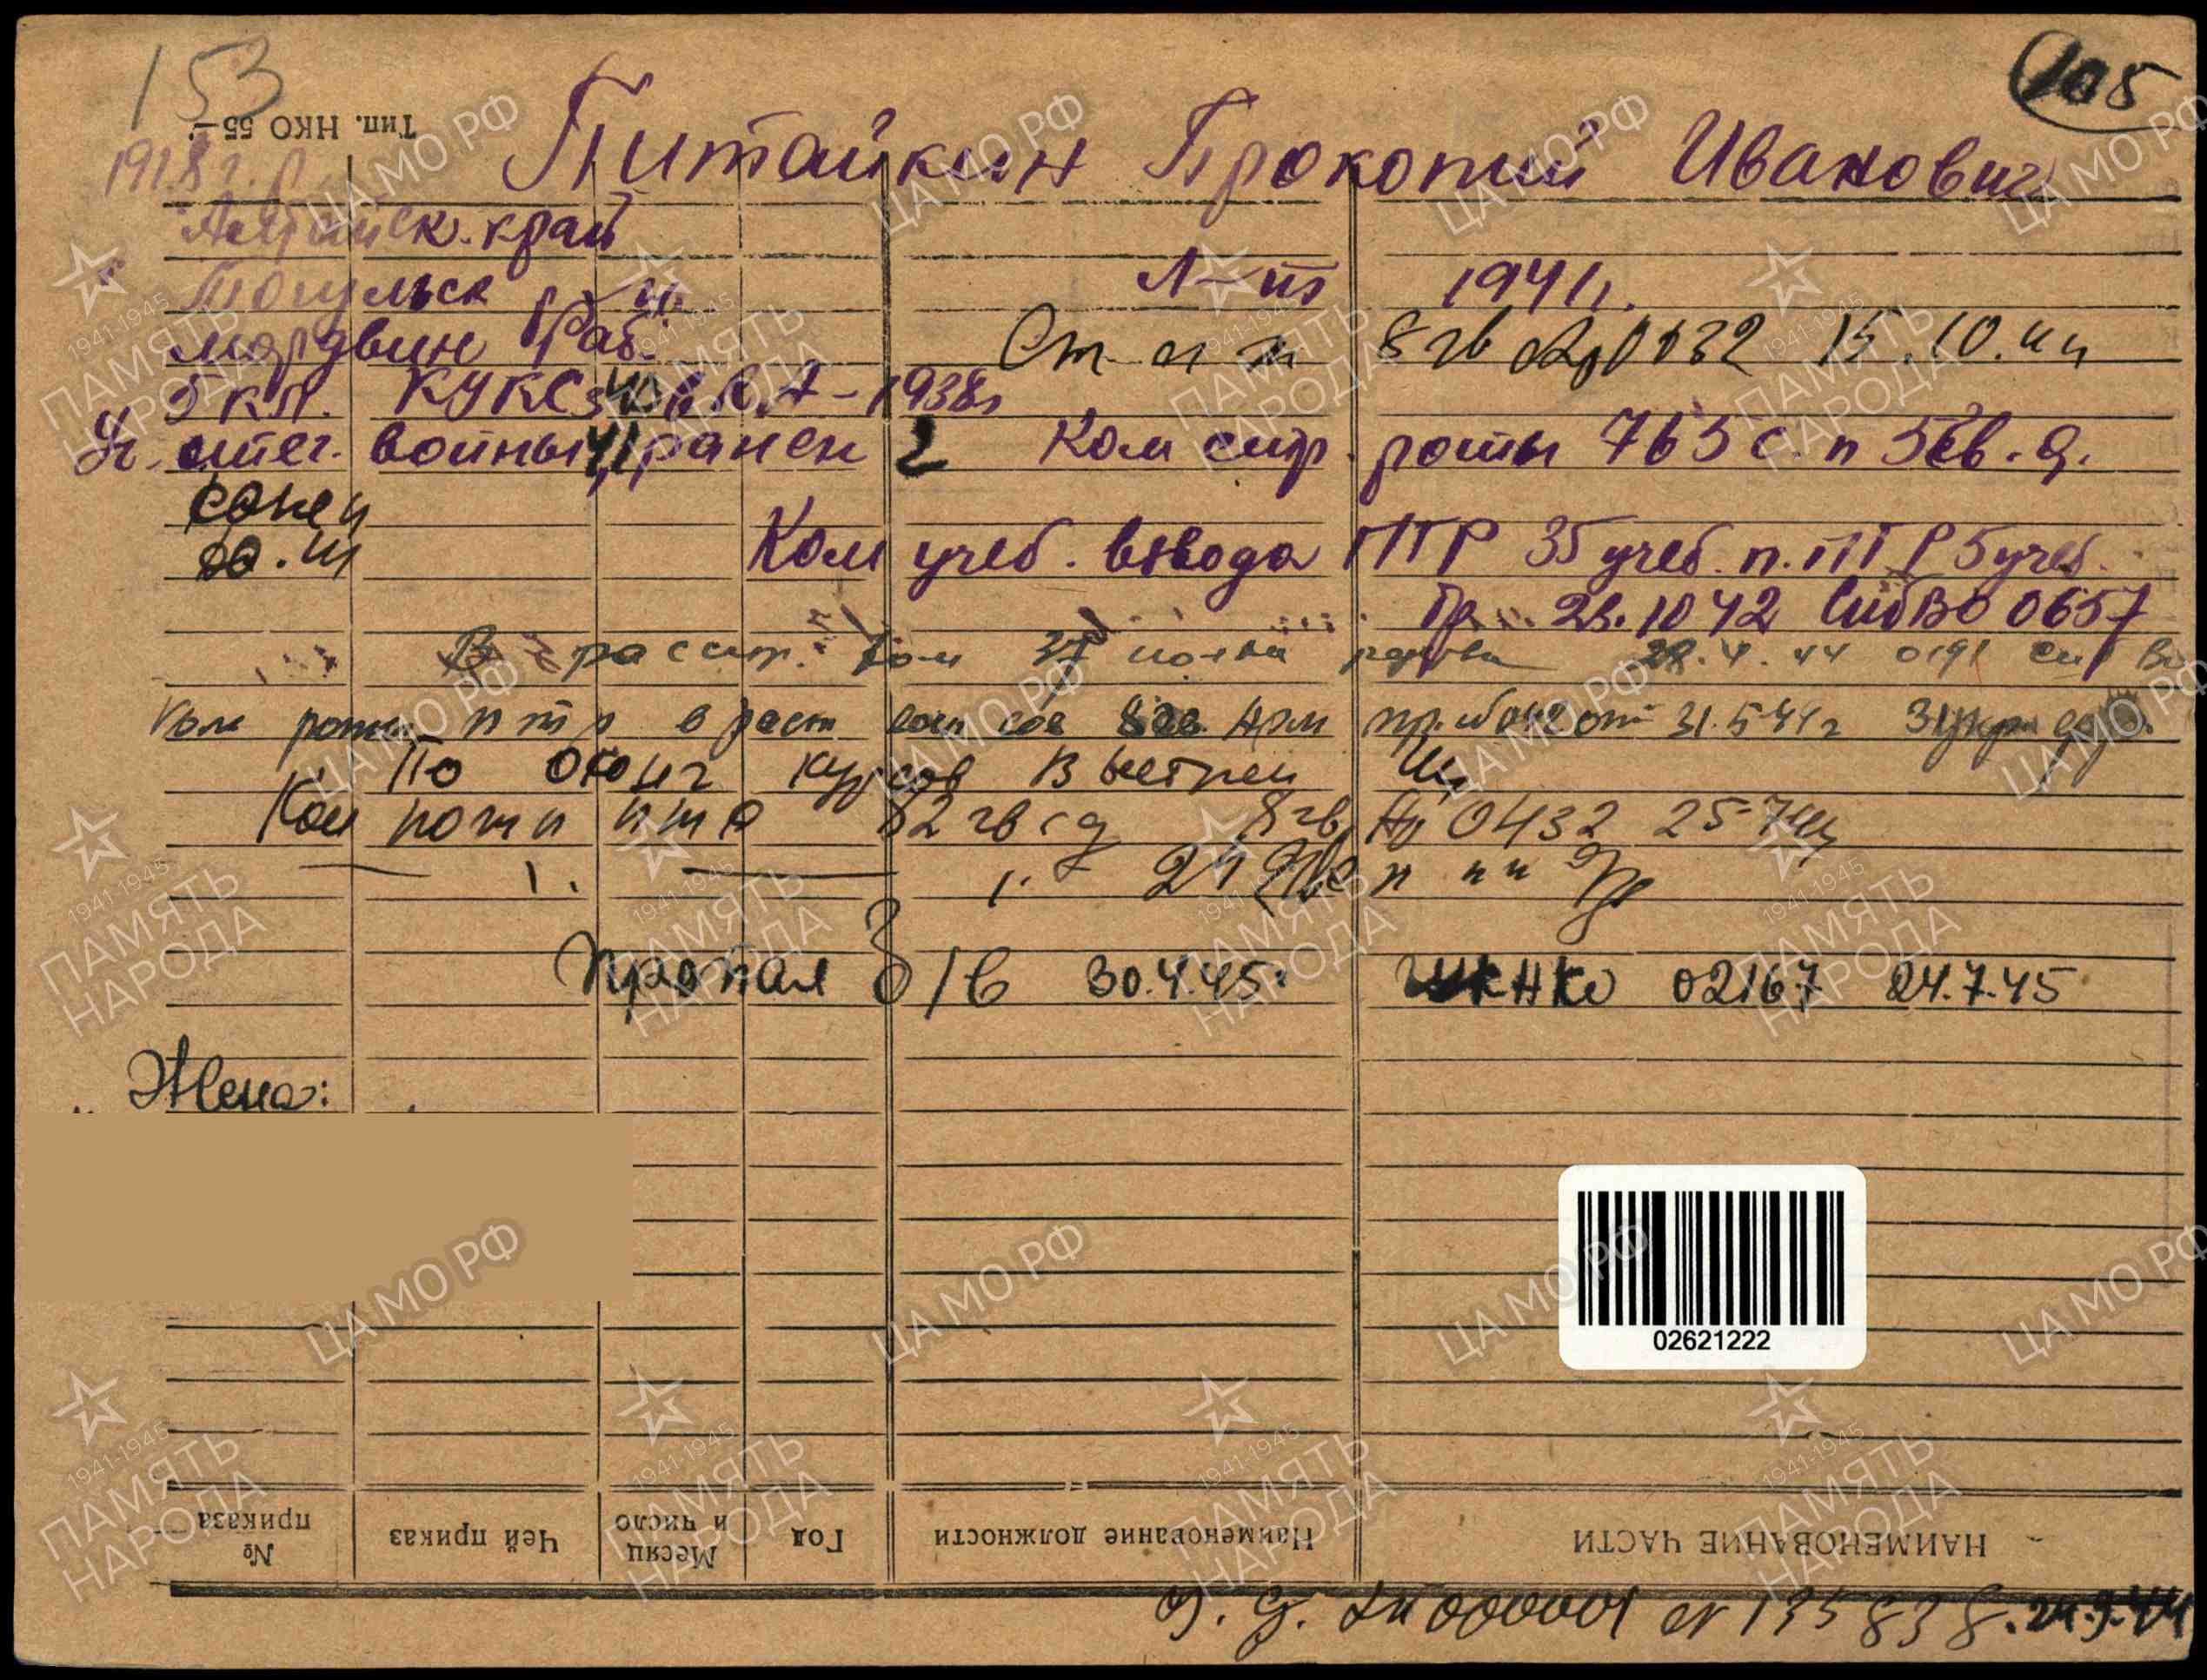 153
105
Тип. НКО 55
Питайкин Прокопий Иванович
1918 г. р.
Алтайск. край
Тогульск р-н
Л-т 1941 г.
мордвин Раб.
Ст л-т 8 гв 0132 15.10.44
5 кл. КУКС 1938 г
Уч. отеч. войны 41, ранен 2
Ком стр. роты 765 с. п
холост
Ком учеб. взвода ПТР 35 учеб. п. ПТР 5 учеб.
бр. 23.10 42 СибВО 0657
В расст. полка 28.4.44 0191 Сиб Во
Ком роты птр в расп 8 гв. Арм от 31.5 44 г 3 Укр фр.
По оконч курсов Выстрел
Ком роты птр 82 гв сд 8 гв А 0432 25 7 44
Пропал б/в 30.4.45 ГУК НКО 02167 24.7.45
Жена:
02621222
№ приказа
Чей приказ
Месяц и число
Год
Наименование должности
НАИМЕНОВАНИЕ ЧАСТИ
N 135838. 24.9.44
ЦА МО РФ
1941-1945
ПАМЯТЬ НАРОДА